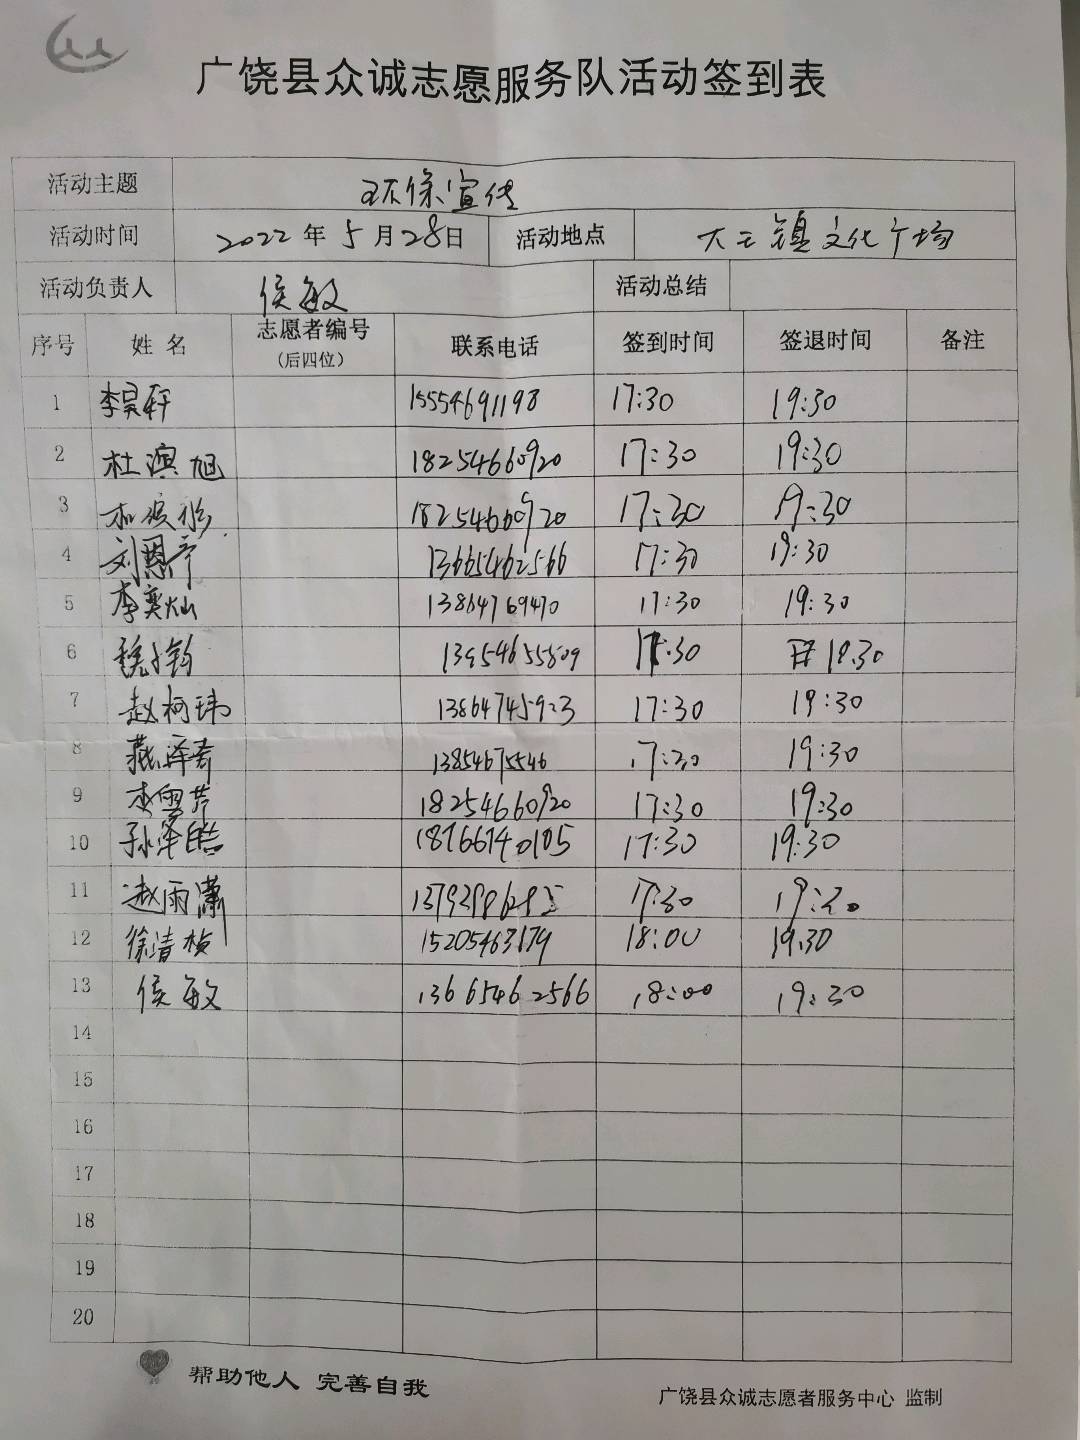 广饶县众诚志愿服务队活动签到表
活动主题 环保宣传
活动时间 2022年5月28日 活动地点 大王镇文化广场
活动负责人 侯敏 活动总结
序号 姓名 志愿者编号 (后四位) 联系电话 签到时间 签退时间 备注
1 李昊轩 15554691198 17:30 19:30
2 杜滨旭 18254660920 17:30 19:30
3 18254660920 17:30 19:30
4 刘恩宁 13665462566 17:30 19:30
5 李奕灿 13864769470 17:30 19:30
6 13954655809 17:30 18:30
7 赵柯玮 13864745923 17:30 19:30
8 燕泽奇 13854675546 17:30 19:30
9 李雪芹 18254660920 17:30 19:30
10 孙泽皓 18766740185 17:30 19:30
11 赵雨潇 17:30 19:30
12 徐清桢 15205463179 18:00 19:30
13 侯敏 13665462566 18:00 19:30
14
15
16
17
18
19
20
帮助他人 完善自我
广饶县众诚志愿者服务中心 监制